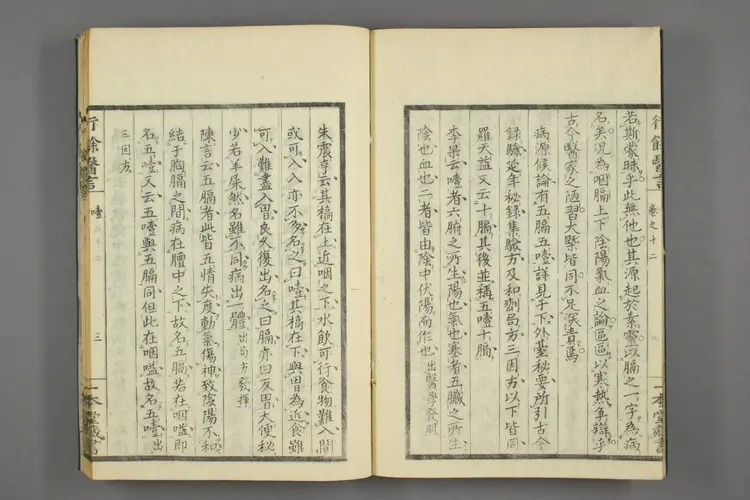 若斯蒙昧乎此無他也其源起於素靈以膈之一字為病
名矣況為咽膈上下陰陽氣血之論區區以寒熱年辯乎
古今醫家之陋習大槩皆同不足深責焉
病源候論有五膈五噎詳見于下外臺秘要所引古今
錄驗延年秘錄集驗方及和劑局方三因方以下皆同
羅天益又云十膈其後並稱五噎十膈
李杲云噎者六腑之所生陽也氣也塞者五臟之所生
陰也血也二者皆由陰中伏陽而作也出醫學發明
行餘醫言
卷之十二
一本堂藏書
朱震亨云其槁在上近咽之下水飲可行食物難入間
或可入入亦不多名之曰噎其槁在下與胃為近食雖
可入難盡入胃良久復出名之曰膈亦曰反胃大便秘
少若羊屎然名雖不同病出一體出局方發揮
陳言云五膈者此皆五情失度動氣傷神致陰陽不和
結于胸膈之間病在膻中之下故名五膈若在咽嗌即
名五噎又云五噎與五膈同但此在咽嗌故名五噎出
三因方
行餘醫言
噎
三
一本堂藏書